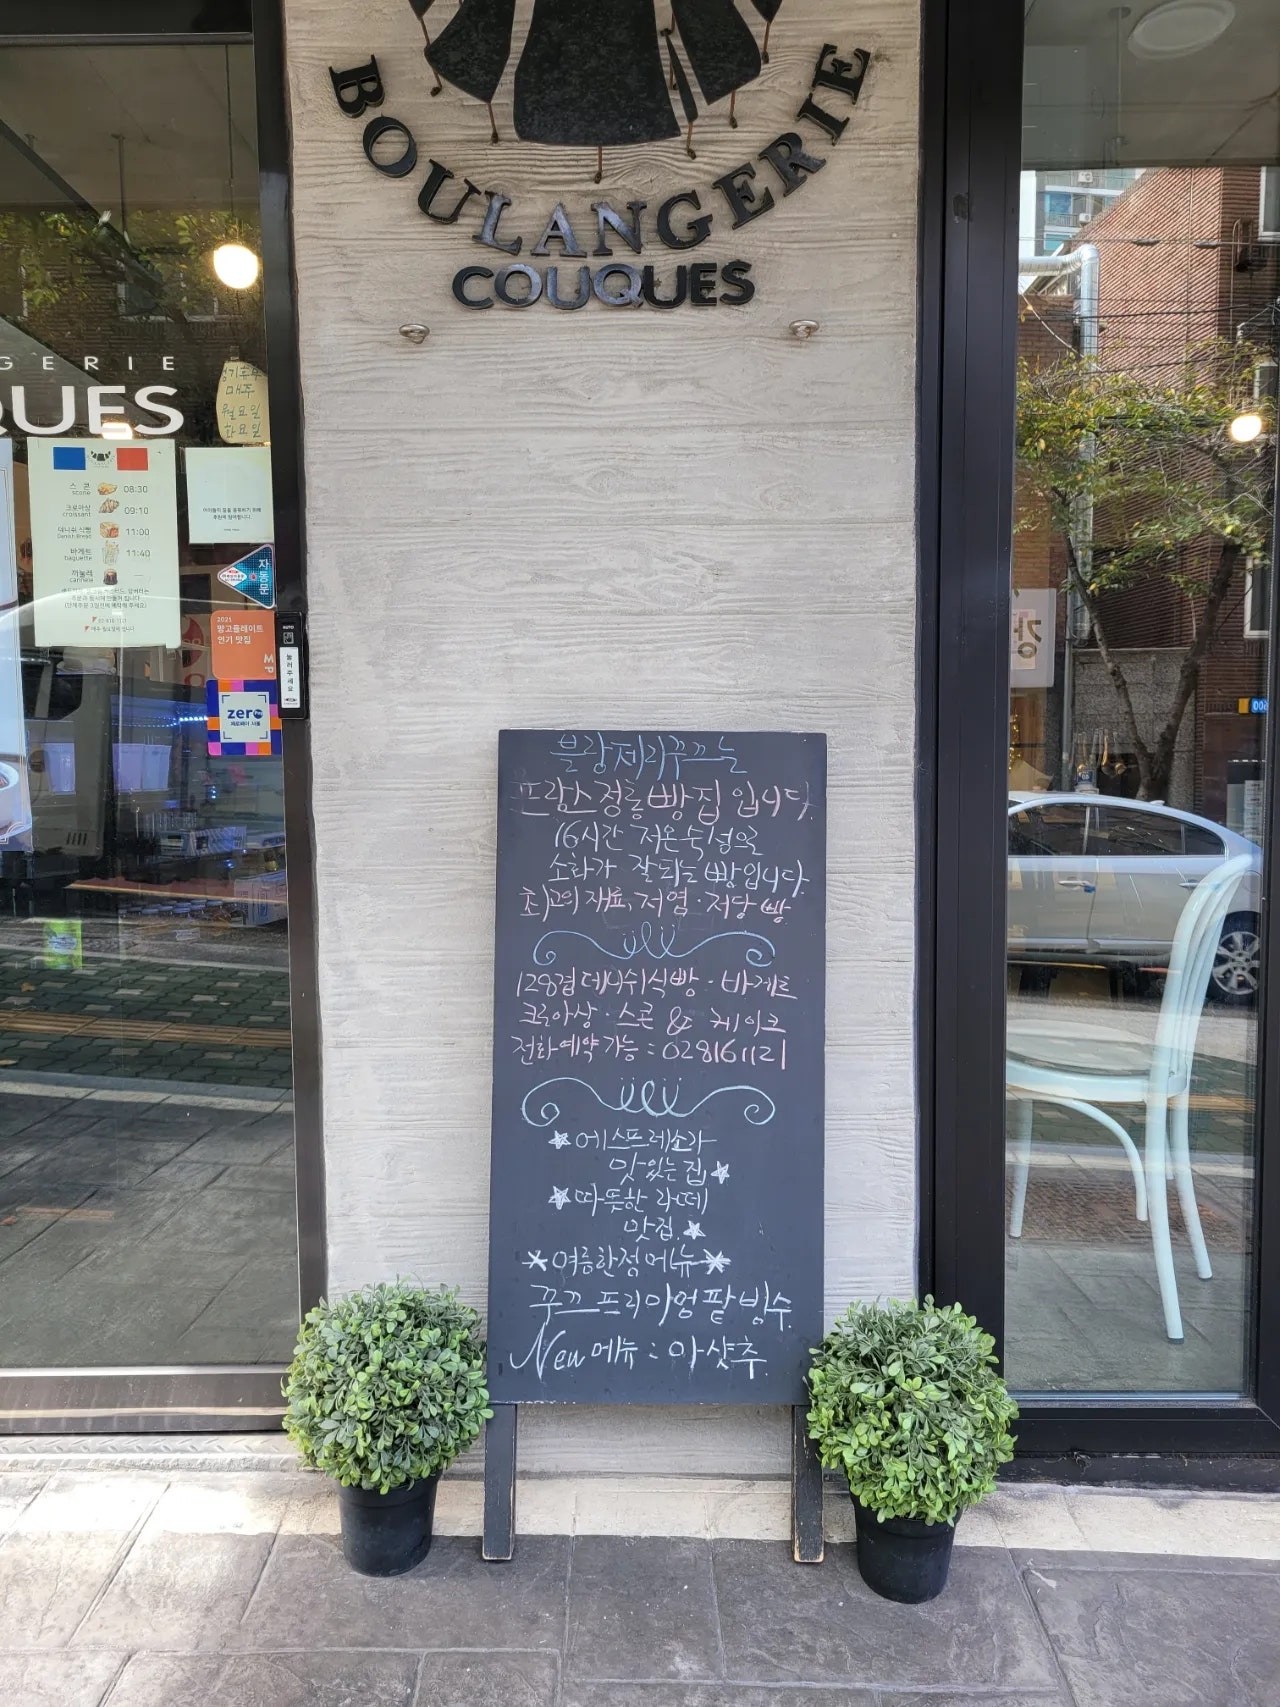 BOULANGERIE
COUQUES
GERIE
QUES
매주
월요일
화요일
스콘
scone
08:30
크로와상
croissant
09:10
데니쉬 식빵
Danish Bread
11:00
바게트
baguette
11:40
까눌레
cannele
자동문
2021
망고플레이트
인기 맛집
MP
AUTO
눌러주세요
zero
제로페이 서울
블랑제리꾸끄는
프랑스정통빵집 입니다.
16시간 저온숙성으로
소화가 잘되는 빵입니다.
최고의 재료, 저염·저당 빵
128겹데니쉬식빵·바게트
크로아상·스콘 & 케이크
전화예약가능:028161121
에스프레소라
맛있는집
따뜻한 라떼
맛집.
여름한정메뉴
꾸끄프리미엄팥빙수.
New메뉴:아샷추.
강